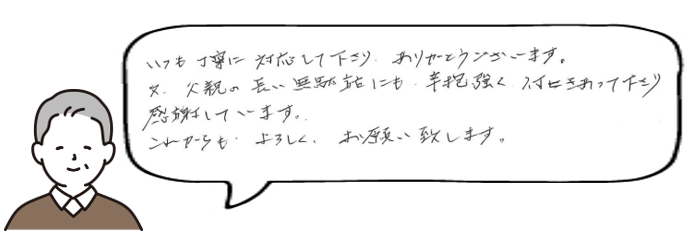 いつも丁寧に対応して下さり、ありがとうございます。
又、父親の長い無駄話にも、辛抱強く、付きあって下さり
感謝しています。
これからも、よろしく、お願い致します。